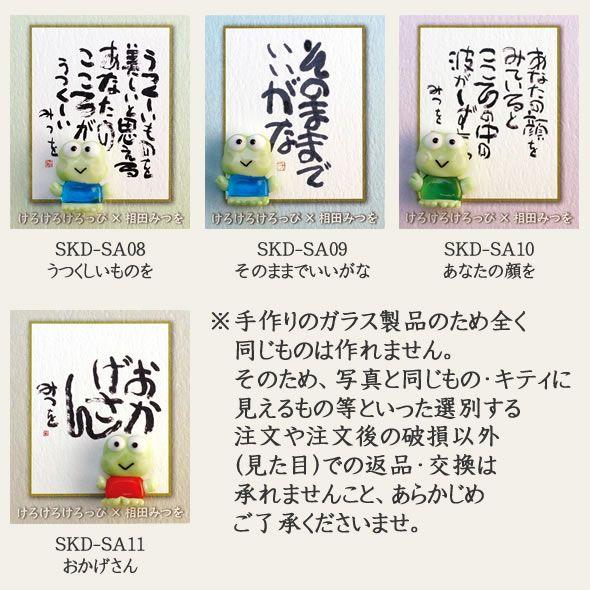 うつくしいものを
美しいと思える
あなたの
こころが
うつくしい
みつを
けろけろけろっぴ × 相田みつを
SKD-SA08
うつくしいものを
そのままで
いいがな
けろけろけろっぴ × 相田みつを
SKD-SA09
そのままでいいがな
あなたの顔を
みていると
こころの中の
波がしず
みつを
けろけろけろっぴ × 相田みつを
SKD-SA10
あなたの顔を
おか
げさ
ん
みつを
けろけろけろっぴ × 相田みつを
SKD-SA11
おかげさん
※手作りのガラス製品のため全く
同じものは作れません。
そのため、写真と同じもの・キティに
見えるもの等といった選別する
注文や注文後の破損以外
(見た目)での返品・交換は
承れませんこと、あらかじめ
ご了承くださいませ。